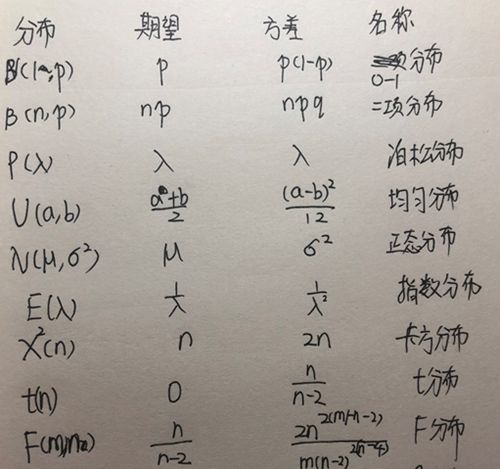 分布 期望 方差 名称
B(1,p) p p(1-p) 0-1分布
B(n,p) np npq 二项分布
P(λ) λ λ 泊松分布
U(a,b) (a+b)/2 (a-b)²/12 均匀分布
N(μ,σ²) μ σ² 正态分布
E(λ) 1/λ 1/λ² 指数分布
X²(n) n 2n 卡方分布
t(n) 0 n/(n-2) t分布
F(m,n) n/(n-2) 2n^2(m+n-2)/m(n-2)^2(n-4) F分布